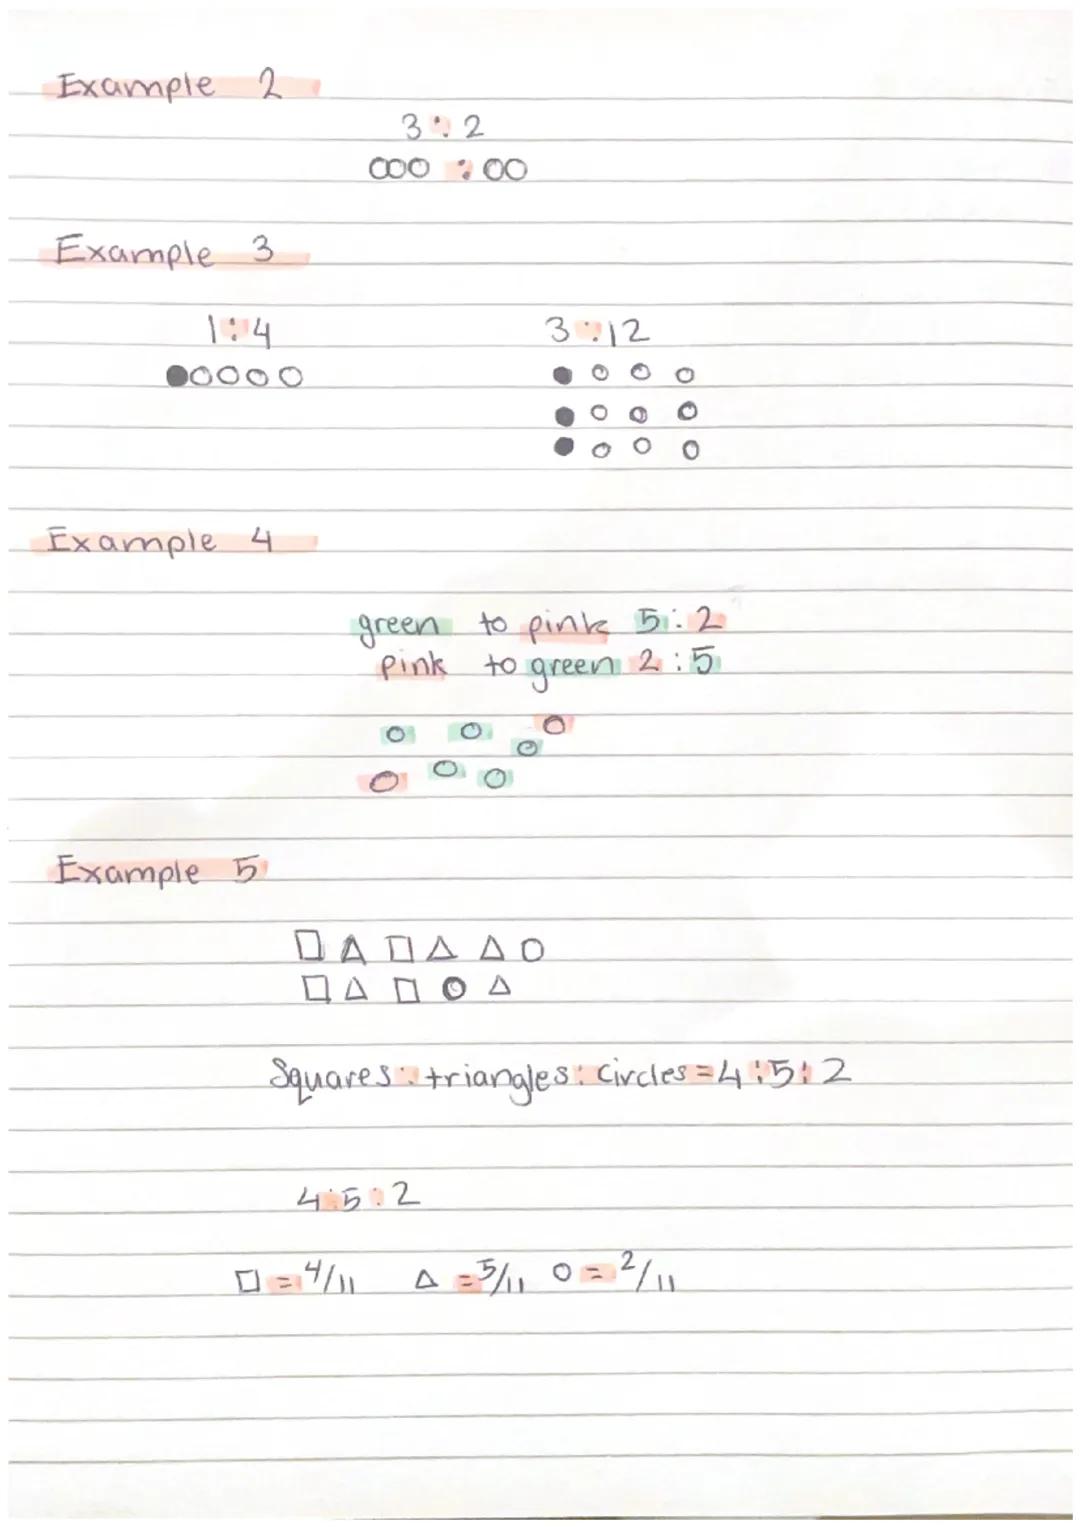 Example 2
3 : 2
Example 3
1 : 4 3 : 12
Example 4
green to pink 5 : 2
pink to green 2 : 5
Example 5
Squares : triangles : circles = 4 : 5 : 2
4 : 5 : 2
□ = 4/11 △ = 5/11 ○ = 2/11